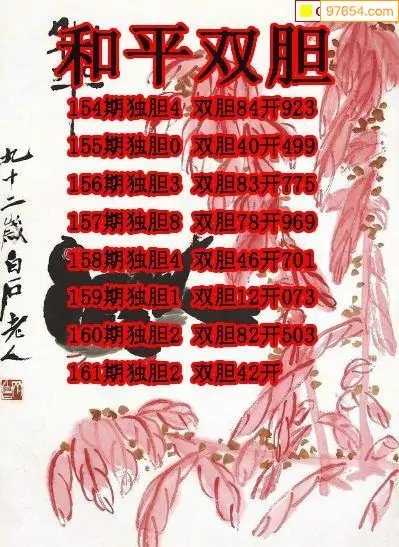 97654.com
和平双胆
154期独胆4 双胆84开923
155期独胆0 双胆40开499
156期独胆3 双胆83开775
157期独胆8 双胆78开969
158期独胆4 双胆46开701
159期独胆1 双胆12开073
160期独胆2 双胆82开503
161期独胆2 双胆42开
九十二岁白石老人